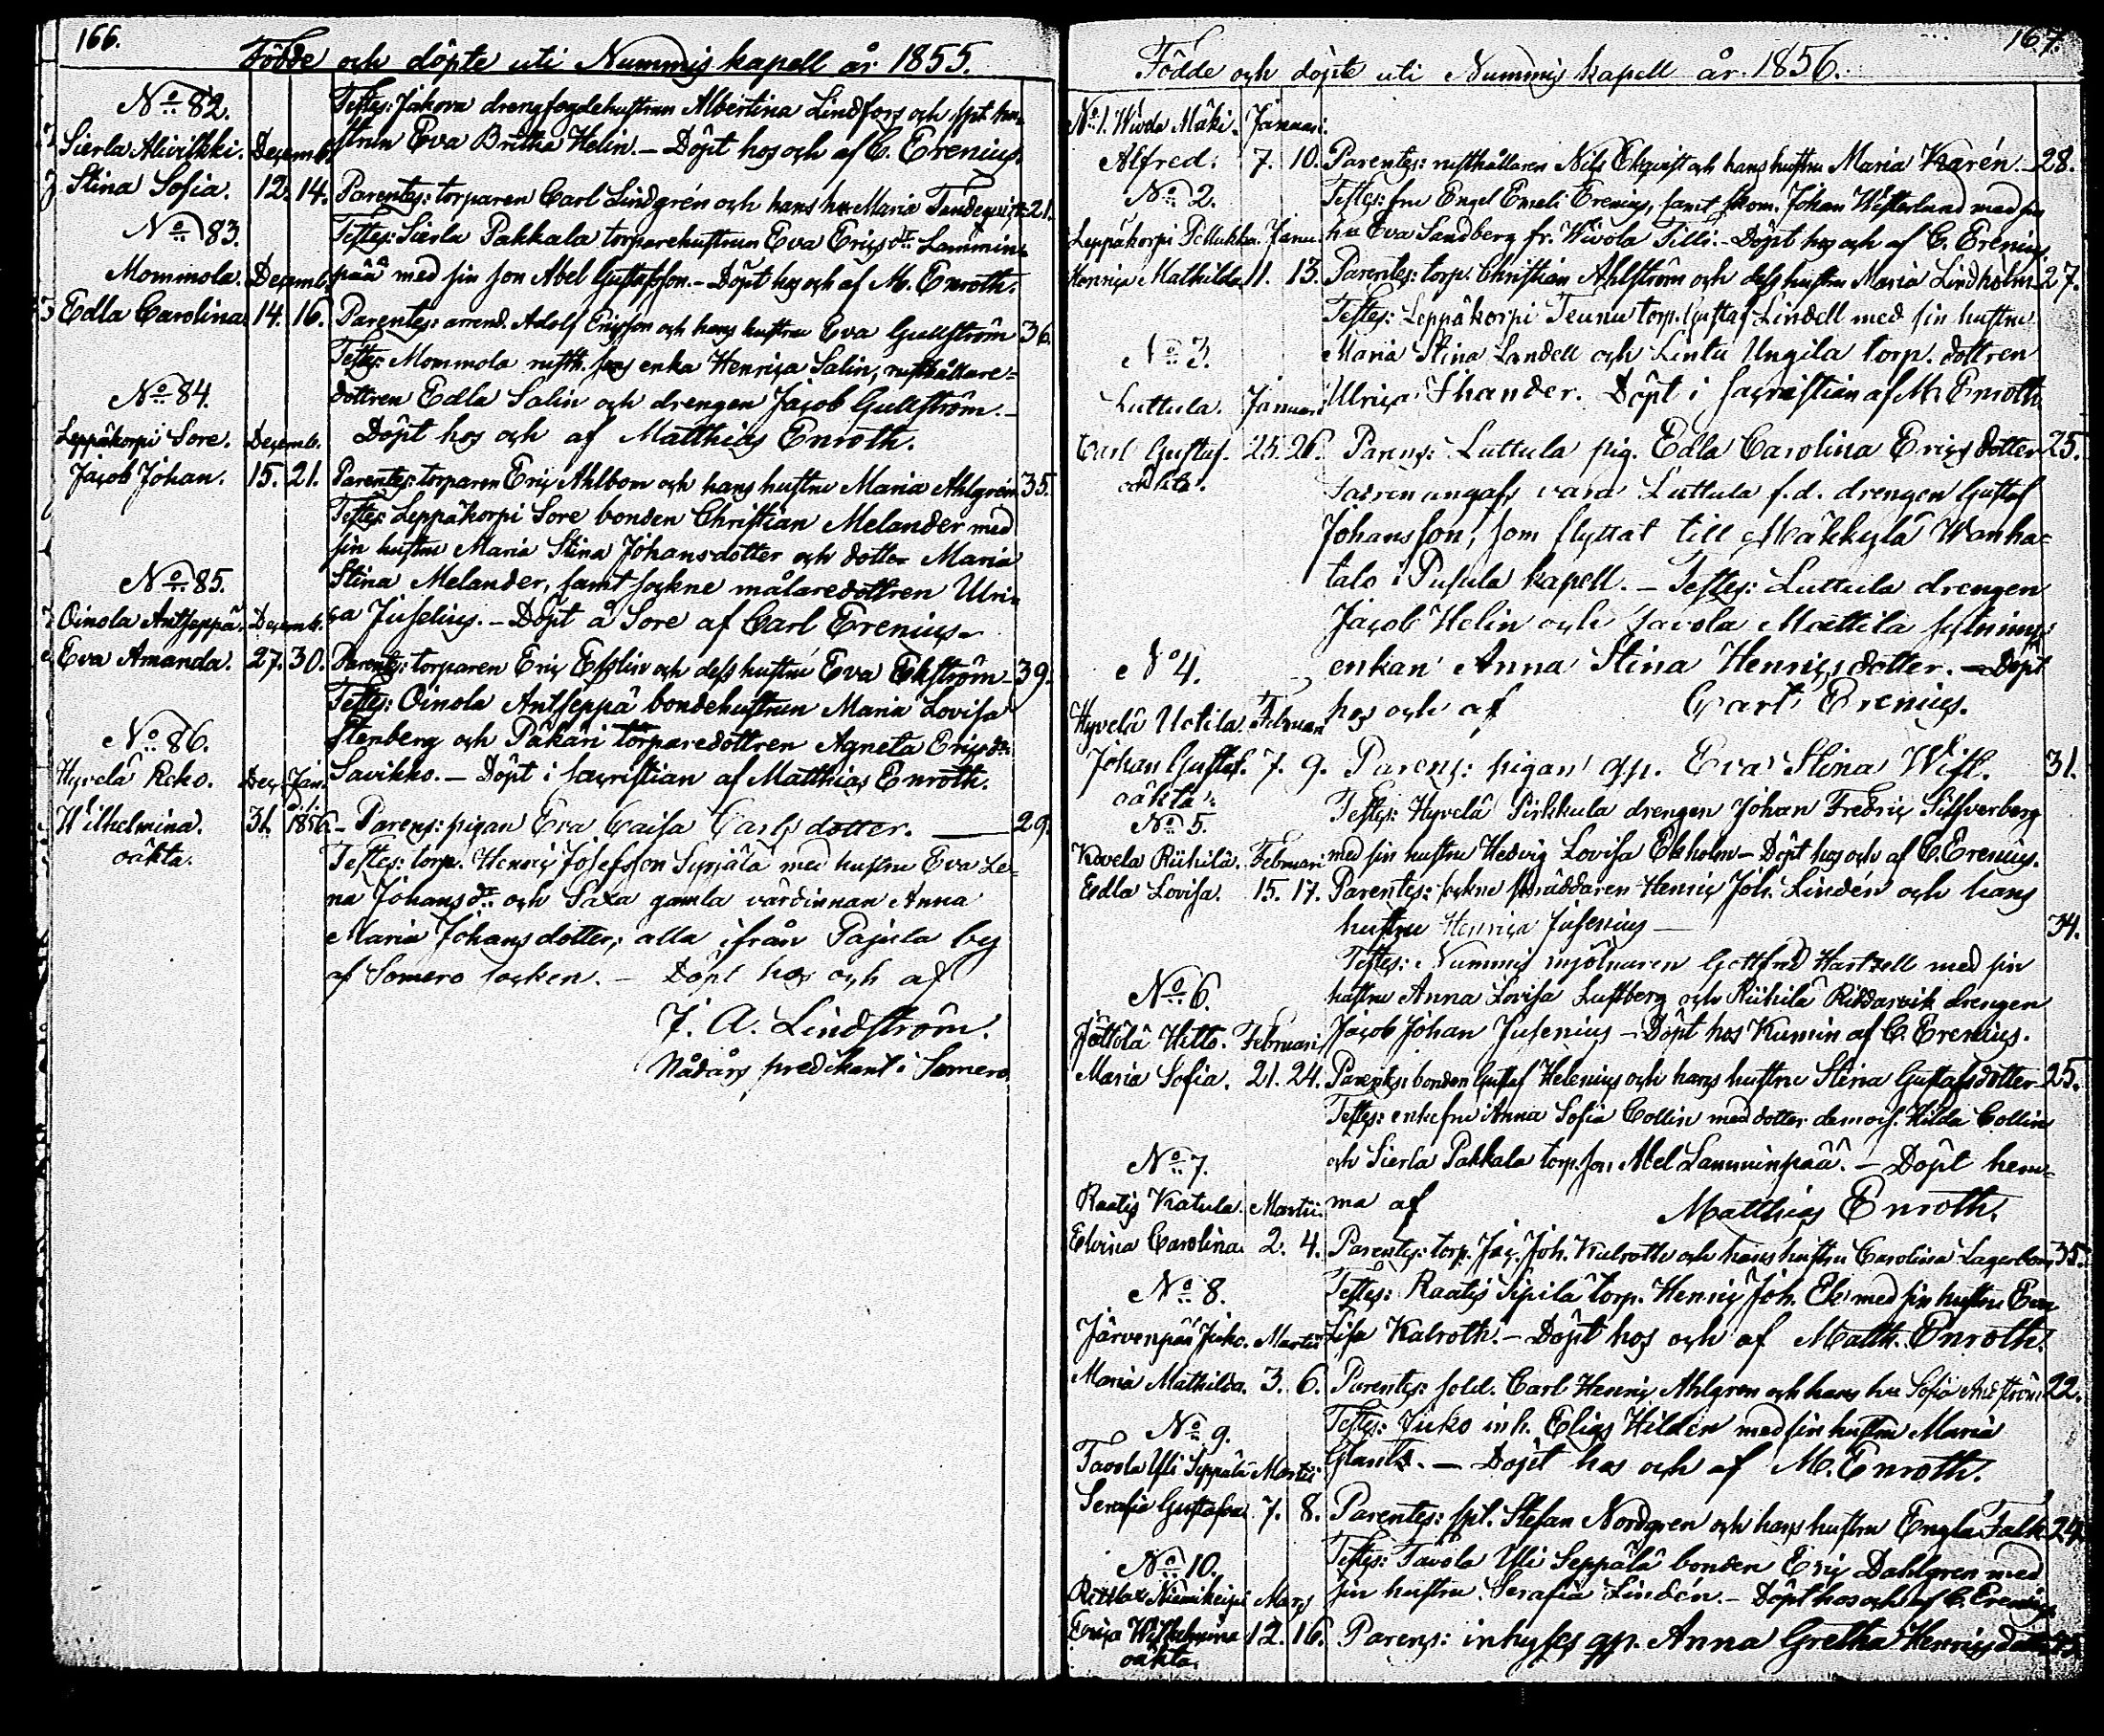 166.
Födde och döpte uti Nummis kapell år 1855.
No 82. Testes: Jakova drengfogdehustrun Albertina Lindfors och spt. hu-
Sierla Alivilkki. Decemb. strun Eva Britha Helin. – Döpt hos och af C. Erenius.
Stina Sofia. 12. 14. Parentes: torparen Carl Lindgrén och hans hu Maria Tandeqvist 21.
No 83. Testes: Sierla Pakkala torparehustrun Eva Ericsdr. Lammin-
Mommola. Decemb. pää med sin son Abel Gustafsson. – Döpt hos och af M. Enroth.
Edla Carolina. 14. 16. Parentes: arrend. Adolf Ericsson och hans hustru Eva Gullström 36.
Testes: Mommola rusth. enka Henrica Salin, rusthållare-
No 84. dottren Edla Salin och drengen Jacob Gullström. –
Leppäkorpi Sore. Decemb. Döpt hos och af Matthias Enroth.
Jacob Johan. 15. 21. Parentes: torparen Eric Ahlbom och hans hustru Maria Ahlgrén 35.
Testes: Leppäkorpi Sore bonden Christian Melander med
sin hustru Maria Stina Johansdotter och dotter Maria
No 85. Stina Melander, samt sockne målaredottren Ulri-
Oinola Antseppä. Decemb. ca Juselius. – Döpt å Sore af Carl Erenius –
Eva Amanda. 27. 30. Parentes: torparen Eric Esslin och dess hustru Eva Ekström – 39.
Testes: Oinola Antseppä bondehustrun Maria Lovisa
No 86. Stenberg och Päkäri torparedottren Agneta Ericsdr.
Hyvelä Reko. Dec. Jan. Savikko. – Döpt i sacristian af Matthias Enroth.
Wilhelmina. 31. 1856. – Parens: pigan Eva Caisa Carlsdotter. — 29.
oäkta. Testes: torp. Henric Josefsson Syrjälä med hustru Eva Le-
na Johansdr. och Saxa gamla värdinnan Anna
Maria Johansdotter; alla ifrån Pajula by
af Somero socken. – Döpt hos och af
J. A. Lindström.
Nådårs predikant i Somero.
167.
Födde och döpte uti Nummis kapell år 1856.
No 1. Wivola Mäki. Januari.
Alfred. 7. 10. Parentes: rusthållaren Nils Ekqvist och hans hustru Maria Karén. – 28.
No 2. Testes: fru Engel Emeli Erenius, samt skom. Johan Westerlund med sin
Leppäkorpi Pellukka. Janu. hu Eva Sandberg fr. Wivola Tilli. – Döpt hos och af C. Erenius.
Henrica Mathilda. 11. 13. Parentes: torp. Christian Ahlström och dess hustru Maria Lindholm – 27.
Testes: Leppäkorpi Teunu torp. Gustaf Lindell med sin hustru
No 3. Maria Stina Landell och Lintu Ungila torp. dottren
Luttula. Januari Ulrica Thander. Döpt i sacristian af M. Enroth
Carl Gustaf. 25. 26. Parens: Luttula pig. Edla Carolina Ericsdotter 25.
oäkta. Fadren angafs vara Luttula f.d. drengen Gustaf
Johansson, som flyttat till Mäkkylä Wanha-
talo i Pusula kapell. – Testes: Luttula drengen
Jacob Helin och Tavola Mattila sytnings-
No 4. enkan Anna Stina Henricsdotter. – Döpt
Hyvelä Uotila. Februari hos och af Carl Erenius.
Johan Gustaf. 7. 9. Parens: pigan qp. Eva Stina Wist. 31.
oäkta. Testes: Hyvelä Pirkkula drengen Johan Fredric Silfverberg
No 5.
Kovela Riihilä. Februari med sin hustru Hedvig Lovisa Ekholm – Döpt hos och af C. Erenius.
Edla Lovisa. 15. 17. Parentes: sockne skräddaren Henric Joh. Lindén och hans
hustru Henrica Jusenius — 34.
Testes: Nummis mjölnaren Gottfrid Hartzell med sin
No 6. hustru Anna Lovisa Lustberg och Riihilä Riddarvik drengen
Jättölä Hitto. Februari Jacob Johan Jusenius – Döpt hos Kumin af C. Erenius.
Maria Sofia. 21. 24. Parentes: bonden Gustaf Helenius och hans hustru Stina Gustafsdotter 25.
Testes: enkefru Anna Sofia Collin med dotter demois. Hilda Collin
No 7. och Sierla Pakkala torp. son Abel Lamminpää. – Döpt hem-
Raatis Katula. Martii. ma af Matthias Enroth.
Elvina Carolina. 2. 4. Parentes: torp. Jac. Joh. Kulroth och hans hustru Carolina Lagerbom 35.
No 8. Testes: Raatis Sipilä torp. Henric Joh. Ek med sin hustru Eva
Järvenpää Juko. Martii Lisa Kalroth. – Döpt hos och af Matth. Enroth.
Maria Mathilda. 3. 6. Parentes: sold. Carl Henric Ahlgren och hans hu Sofia Ahlström 22.
No 9. Testes: Juko inh. Elias Hilden med sin hustru Maria
Tavola Yli Seppälä Martii Glants. – Döpt hos och af M. Enroth.
Serafia Gustafva. 7. 8. Parentes: spt. Stefan Nordgren och hans hustru Engla Falk 24.
No 10. Testes: Tavola Yli Seppälä bonden Eric Dahlgren med
Niemikeipi Mars sin hustru Serafia Lindén. – Döpt hos och af C. Erenius
Erica Wilhelmina 12. 16. Parens: inhyses qp. Anna Gretha Henricsdotter
oäkta.